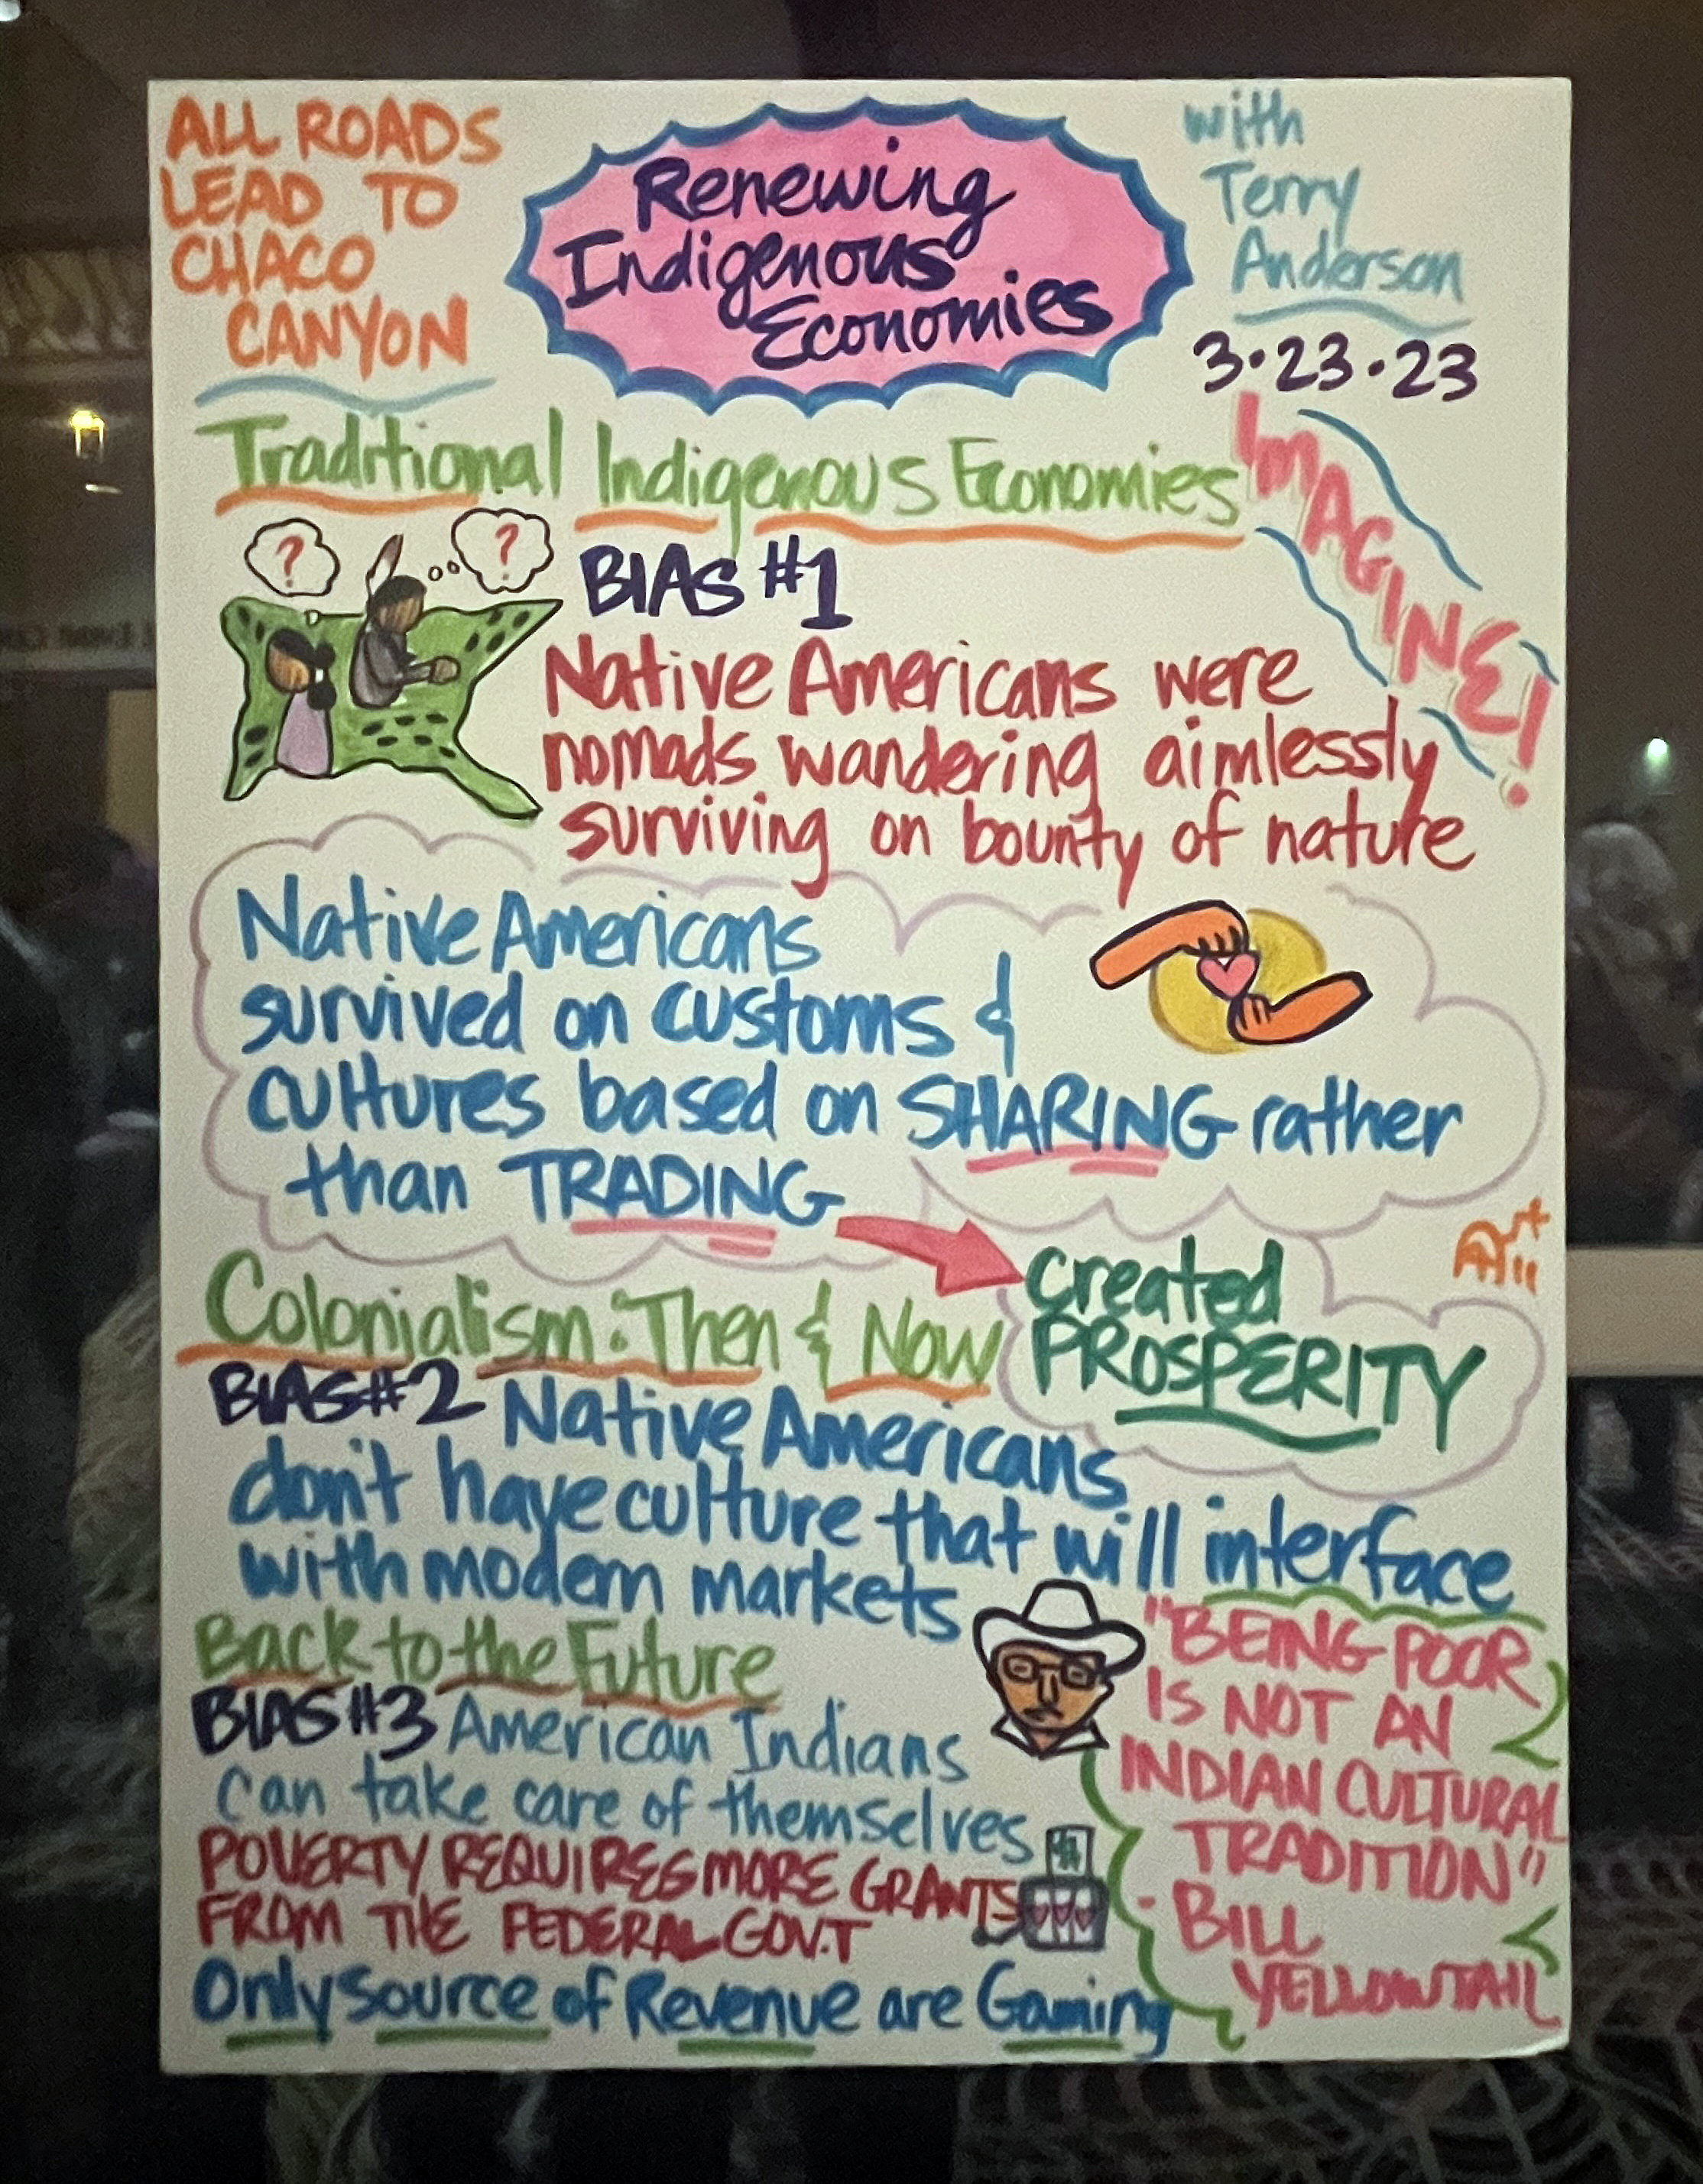 ALL ROADS
LEAD TO
CHACO
CANYON
Renewing
Indigenous
Economies
with
Terry
Anderson
3·23·23
IMAGINE!
Traditional Indigenous Economies
? ?
BIAS #1
Native Americans were
nomads wandering aimlessly
surviving on bounty of nature
Native Americans
survived on customs &
cultures based on SHARING rather
than TRADING
created
PROSPERITY
Colonialism: Then & Now
BIAS #2 Native Americans
don't have culture that will interface
with modern markets
Back to the Future
BIAS #3 American Indians
can take care of themselves
POVERTY REQUIRES MORE GRANTS
FROM THE FEDERAL GOV.T
Only source of Revenue are Gaming
"BEING POOR
IS NOT AN
INDIAN CULTURAL
TRADITION"
- BILL
YELLOWTAIL